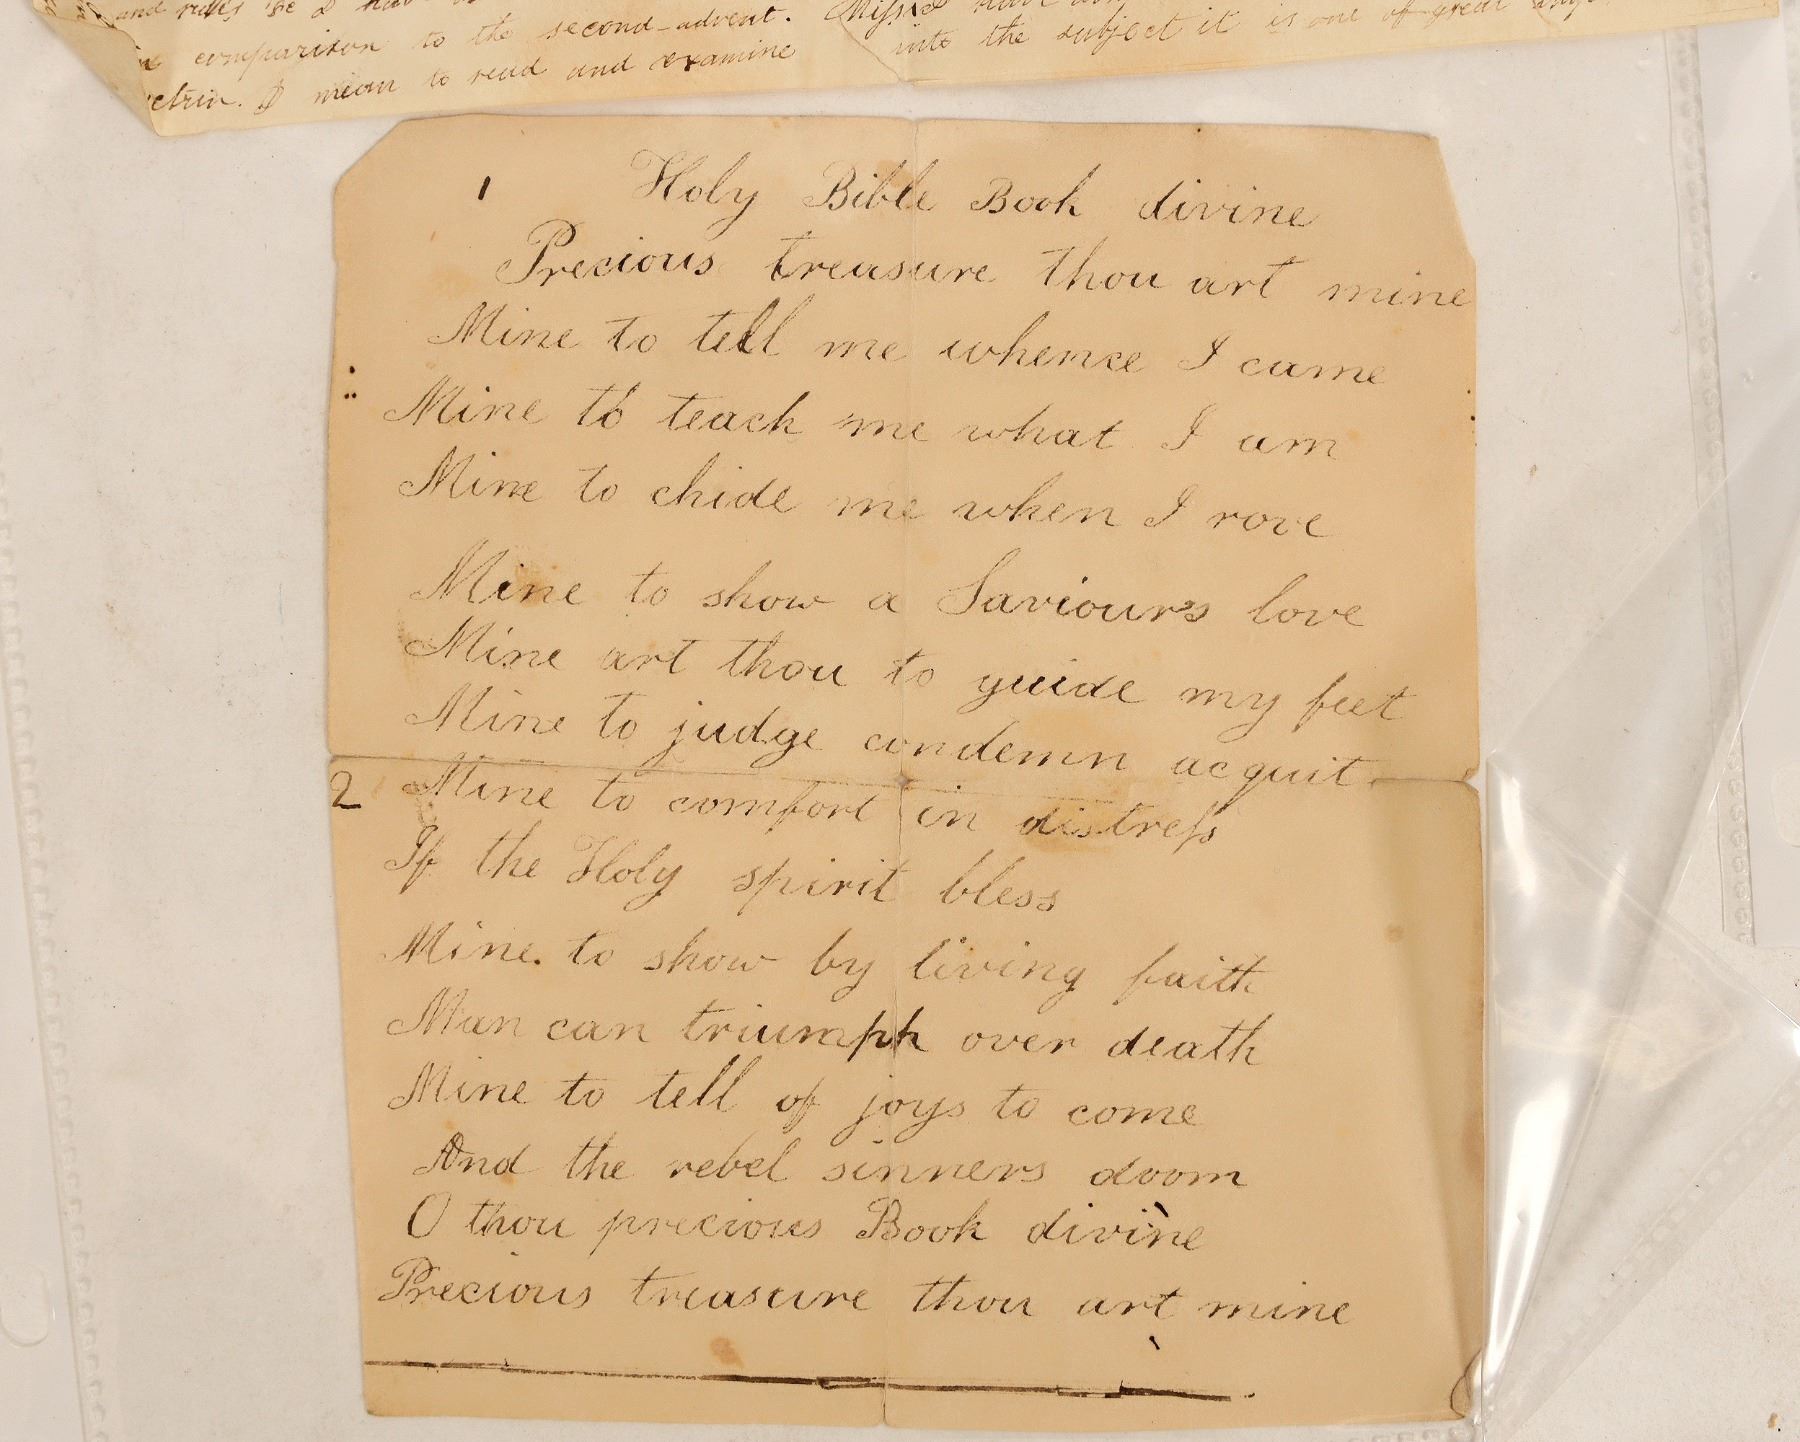 and rules be I
in comparison to the second-advent.
ctrin. I mean to read and examine
into the subject it is one of great
1 Holy Bible Book divine
Precious treasure thou art mine
Mine to tell me whence I came
Mine to teach me what I am
Mine to chide me when I rove
Mine to show a Saviours love
Mine art thou to guide my feet
Mine to judge condemn acquit
2 Mine to comfort in distreſs
If the Holy spirit bless
Mine. to show by living faith
Man can triumph over death
Mine to tell of joys to come
And the rebel sinners doom
O thou precious Book divine
Precious treasure thou art mine